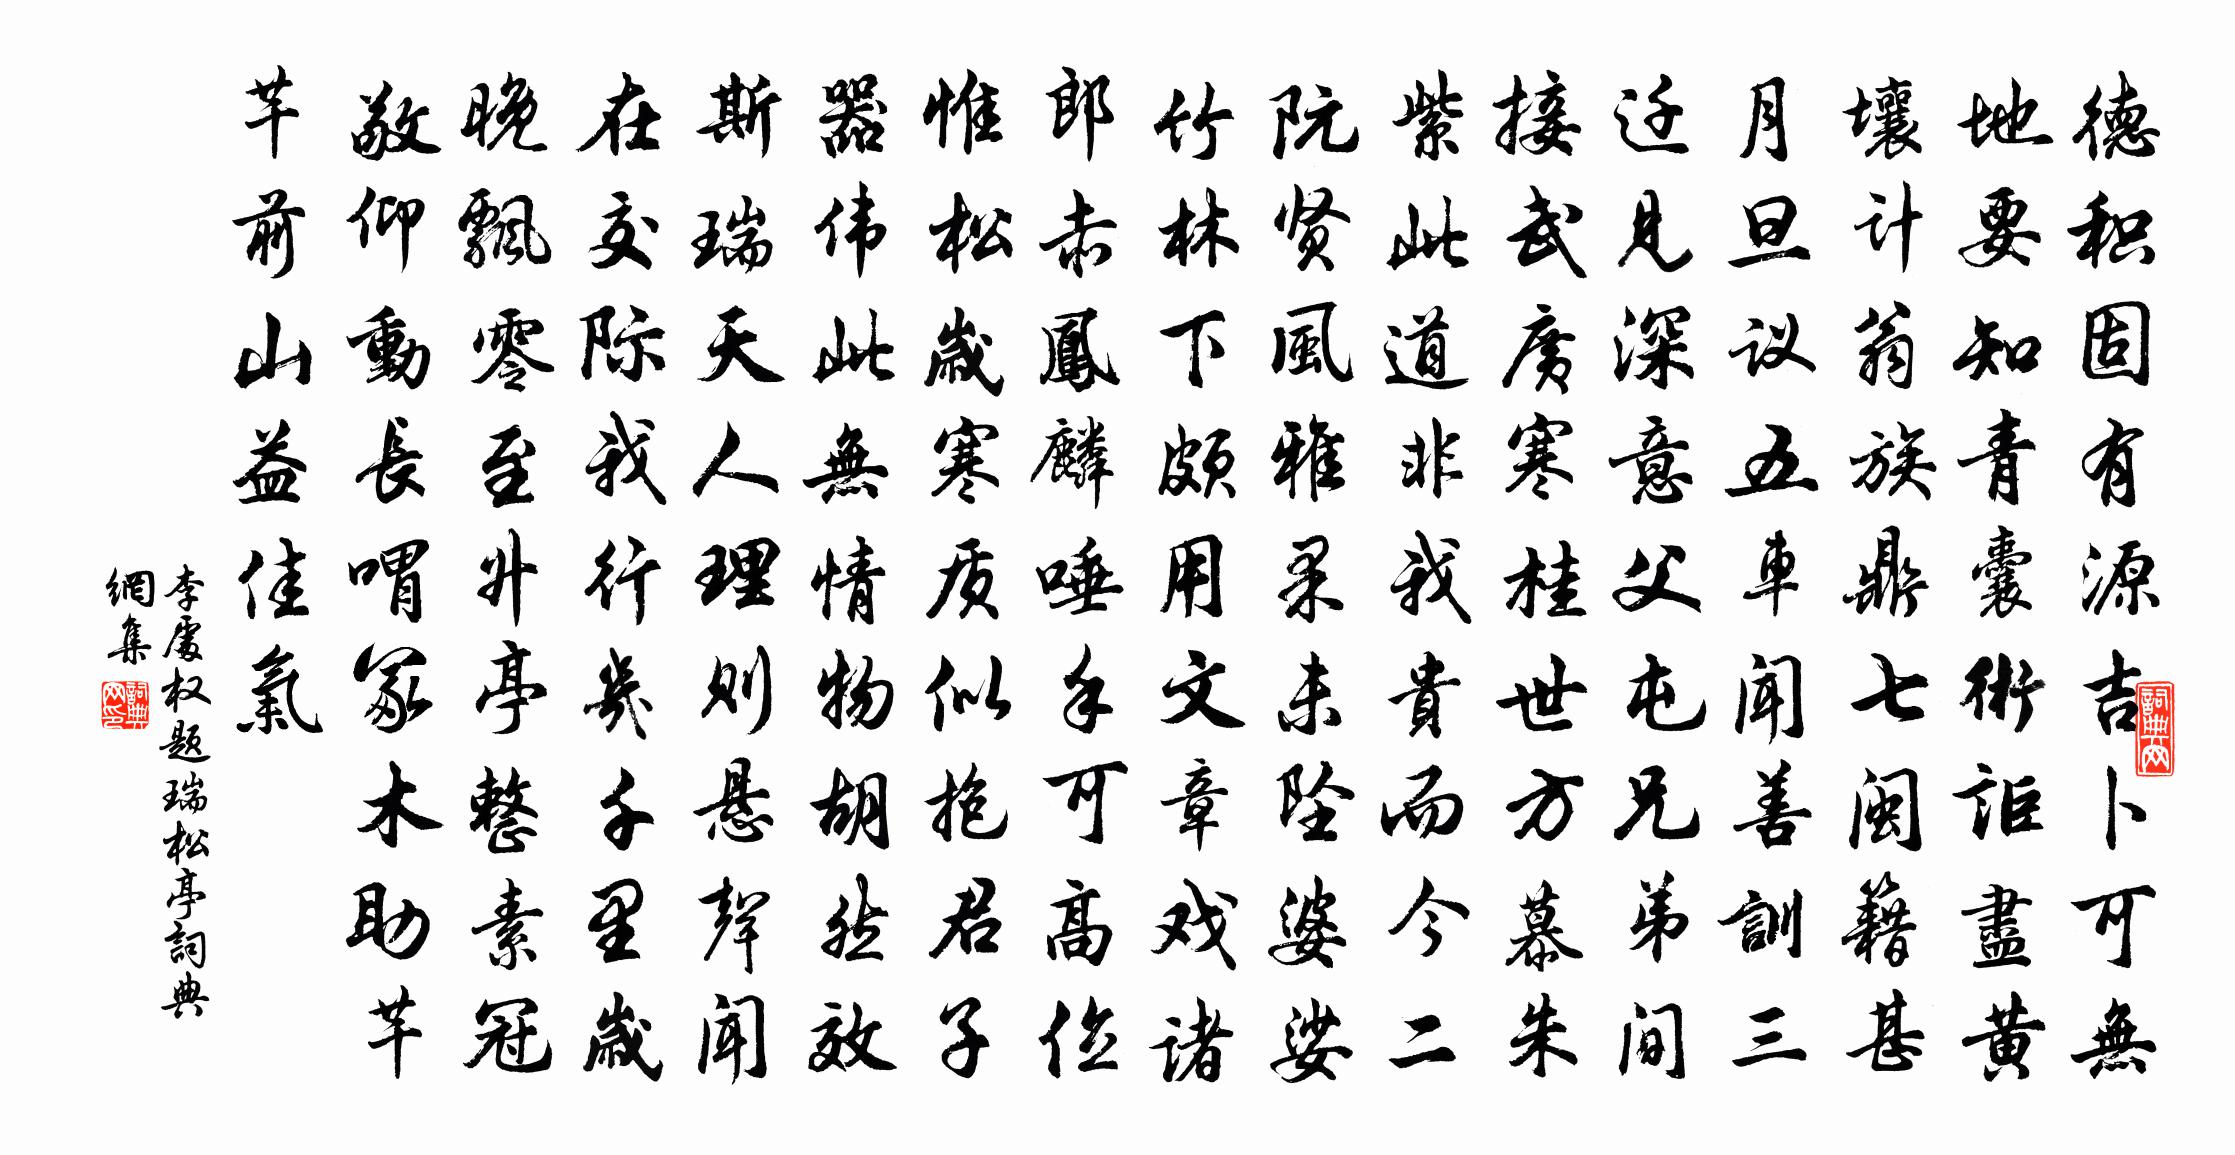 德积固有源吉卜可無
地要知青囊術詎盡黃
壤计翁族鼎七闽籍甚
月旦议五車闻善訓三
迁见深意父屯兄弟间
接武廣寒桂世方慕朱
紫此道非我貴而今二
阮贤風雅果未坠婆娑
竹林下颇用文章戏诸
郎赤鳳麟唾手可高位
惟松歲寒质似抱君子
器伟此無情物胡然效
斯瑞天人理则悬聲闻
在交际我行幾千里歲
晚飄零至升亭整素冠
敬仰動長喟冢木助芊
芊前山益佳氣
李處权题瑞松亭詞典
網集
詞典网
詞典网印